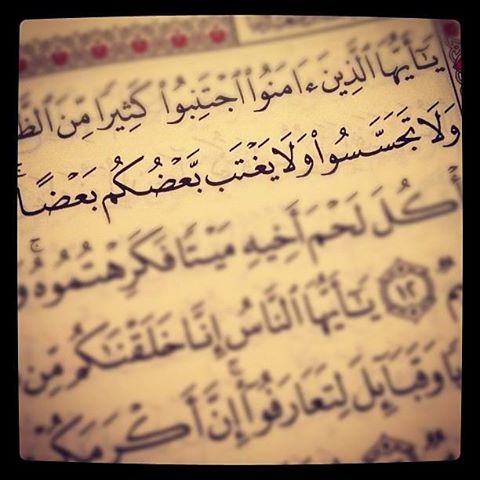 يَـٰٓأَيُّهَا ٱلَّذِينَ ءَامَنُوا۟ ٱجْتَنِبُوا۟ كَثِيرًا مِّنَ ٱلظَّ
وَلَا تَجَسَّسُوا۟ وَلَا يَغْتَب بَّعْضُكُم بَعْضًا ۚ
أْكُلَ لَحْمَ أَخِيهِ مَيْتًا فَكَرِهْتُمُوهُ ۚ وَ
يمٌ ١٢ يَـٰٓأَيُّهَا ٱلنَّاسُ إِنَّا خَلَقْنَـٰكُم مِّن
بًا وَقَبَآئِلَ لِتَعَارَفُوٓا۟ ۚ إِنَّ أَكْرَمَكُمْ